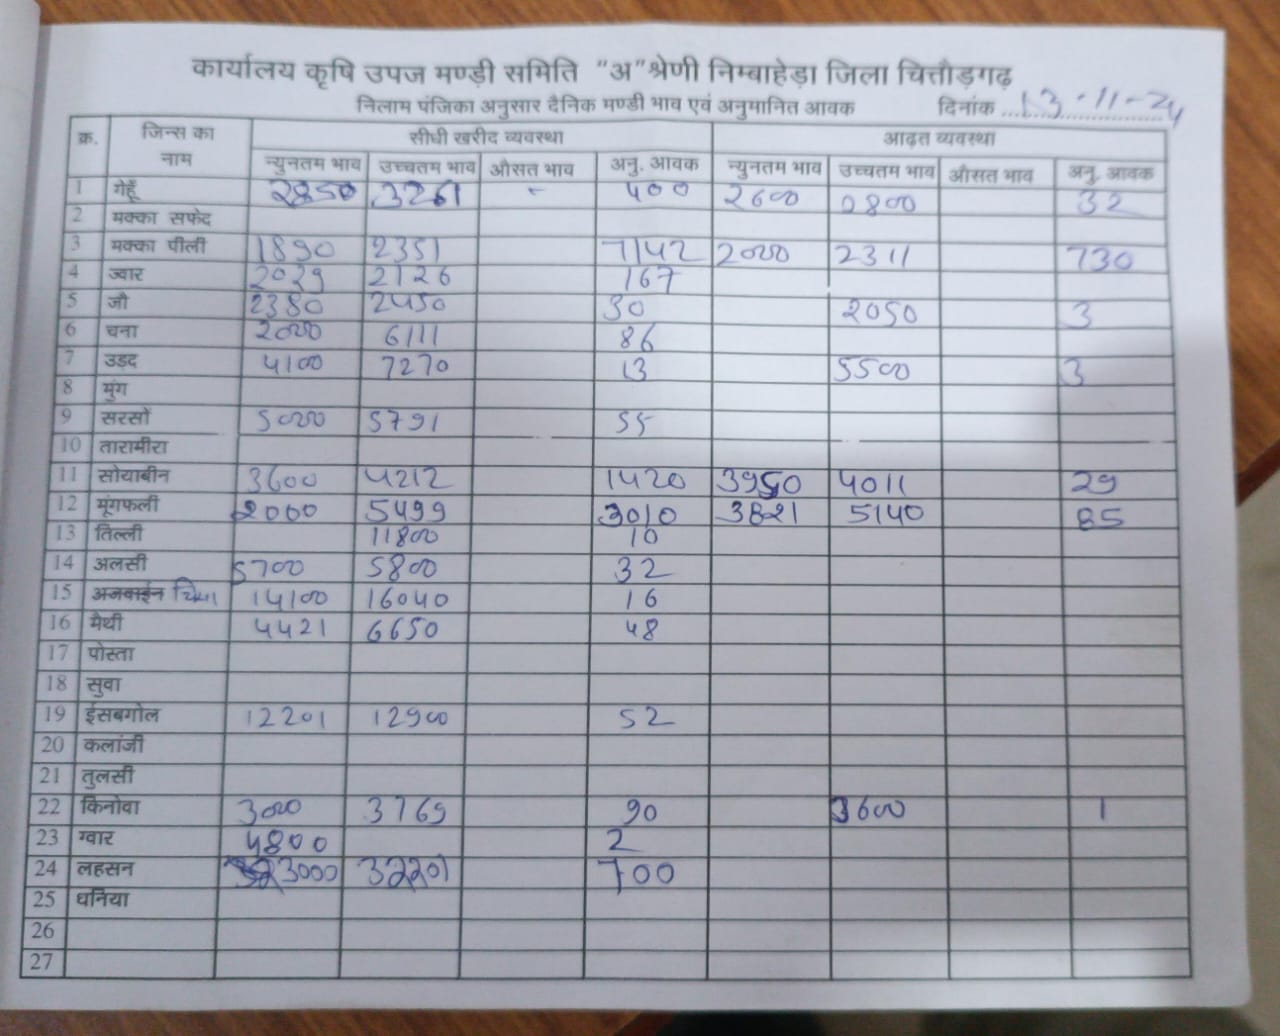 कार्यालय कृषि उपज मण्डी समिति "अ" श्रेणी निम्बाहेड़ा जिला चित्तौड़गढ़
निलाम पंजिका अनुसार दैनिक मण्डी भाव एवं अनुमानित आवक दिनांक 13-11-24
क्र. जिन्स का नाम सीधी खरीद व्यवस्था आढ़त व्यवस्था
न्युनतम भाव उच्चतम भाव औसत भाव अनु. आवक न्युनतम भाव उच्चतम भाव औसत भाव अनु. आवक
1 गेहूँ 2850 3261 - 400 2600 0800 32
2 मक्का सफेद
3 मक्का पीली 1890 2351 7142 2000 2311 730
4 ज्वार 2029 2126 167
5 जौ 2380 2450 30 2050 3
6 चना 2000 6111 86
7 उड़द 4100 7270 13 5500 3
8 मुंग
9 सरसों 5000 5791 55
10 तारामीरा
11 सोयाबीन 3600 4212 1420 3950 4011 29
12 मूंगफली 2000 5499 3010 3821 5140 85
13 तिल्ली 11800 10
14 अलसी 5700 5800 32
15 अजवाईन चिया 14100 16040 16
16 मैथी 4421 6650 48
17 पोस्ता
18 सुवा
19 ईसबगोल 12201 12900 52
20 कलांजी
21 तुलसी
22 किनोवा 3000 3769 90 3600 1
23 ग्वार 4800 2
24 लहसन 3000 32201 700
25 धनिया
26
27